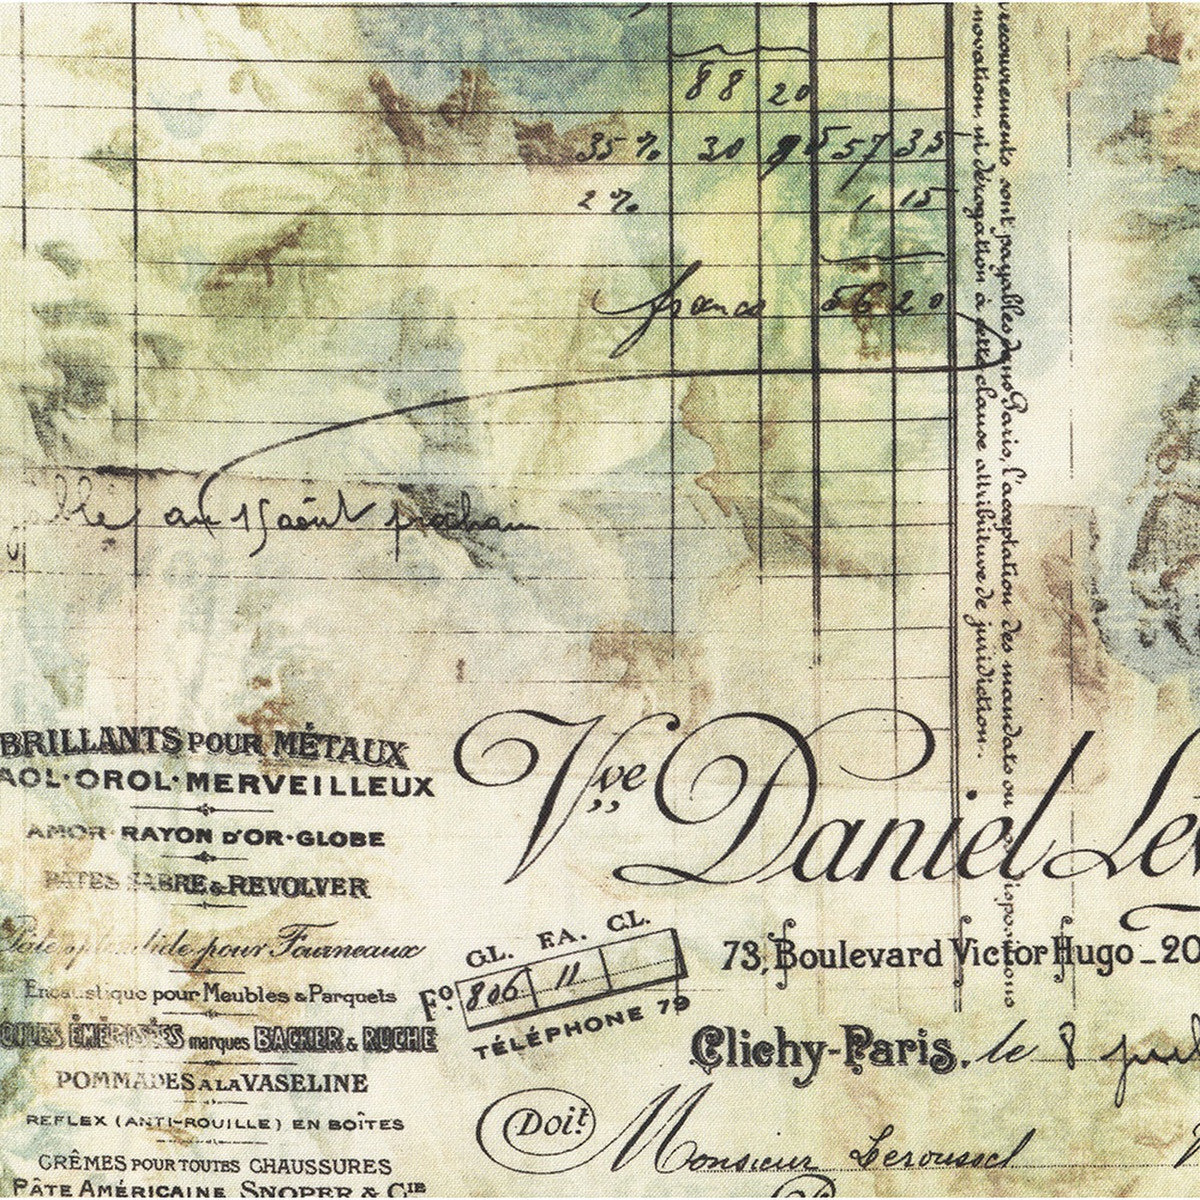 88 20
35 % 30 9 5 57 35
2 % 1 15
franco 56 20
recouvrements sont payables dans Paris, l'acceptation des mandats ou
novation, ni dérogation à cette clause attributive de juridiction.
au 15 août prochain
BRILLANTS POUR MÉTAUX
AOL·OROL·MERVEILLEUX
AMOR·RAYON D'OR·GLOBE
PÂTES SABRE & REVOLVER
Pâte splendide pour Fourneaux
Encaustique pour Meubles & Parquets
TOILES ÉMERISÉES marques BACKER & RUCHE
POMMADES A LA VASELINE
REFLEX (ANTI-ROUILLE) EN BOÎTES
CRÊMES POUR TOUTES CHAUSSURES
PÂTE AMÉRICAINE SNOPER & CIE
Vve Daniel Lev
GL. FA. CL.
Fo. 806 11
TÉLÉPHONE 79
73, Boulevard Victor Hugo _ 20
Clichy-Paris, le 8
Doit Monsieur Leroussel